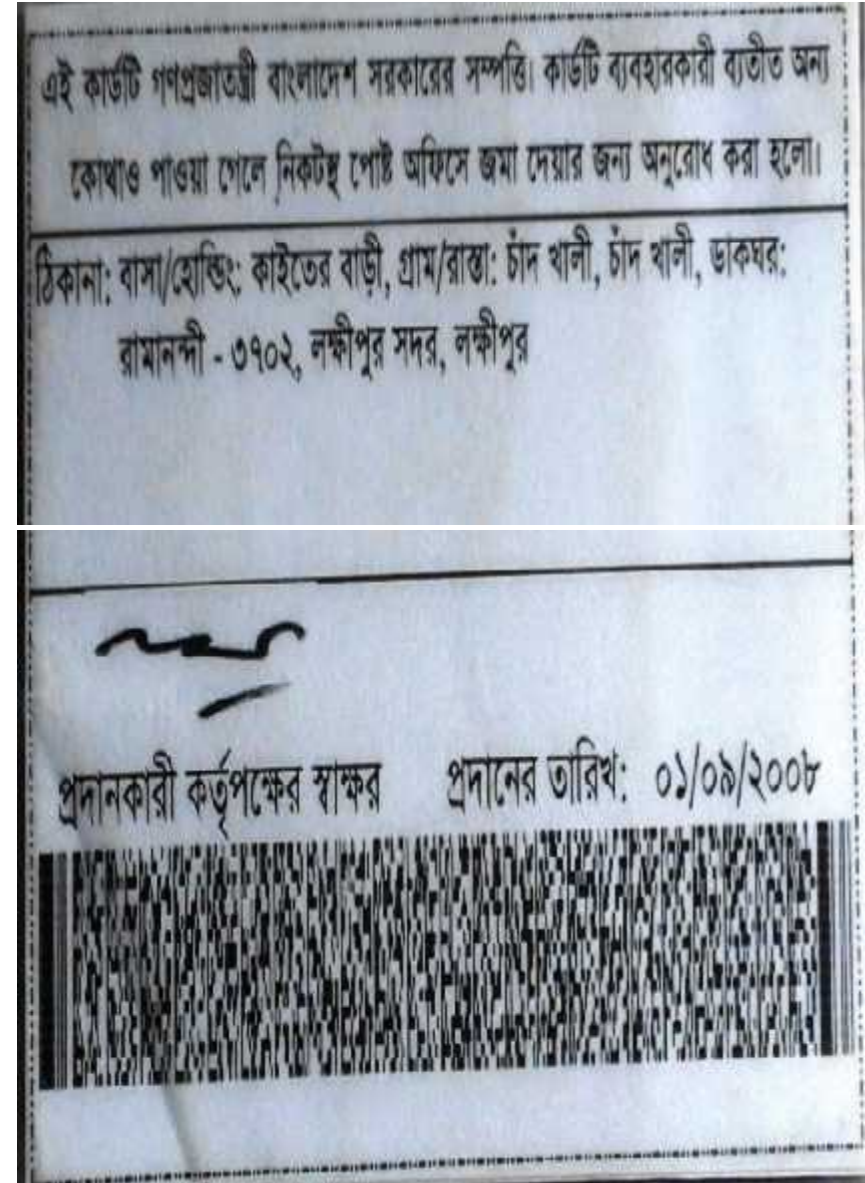 এই কার্ডটি গণপ্রজাতন্ত্রী বাংলাদেশ সরকারের সম্পত্তি। কার্ডটি ব্যবহারকারী ব্যতীত অন্য
কোথাও পাওয়া গেলে নিকটস্থ পোষ্ট অফিসে জমা দেয়ার জন্য অনুরোধ করা হলো।
ঠিকানা: বাসা/হোল্ডিং: কাইতের বাড়ী, গ্রাম/রাস্তা: চাঁদ খালী, চাঁদ খালী, ডাকঘর:
রামানন্দী - ৩৭০২, লক্ষীপুর সদর, লক্ষীপুর
প্রদানকারী কর্তৃপক্ষের স্বাক্ষর প্রদানের তারিখ: ০১/০৯/২০০৮